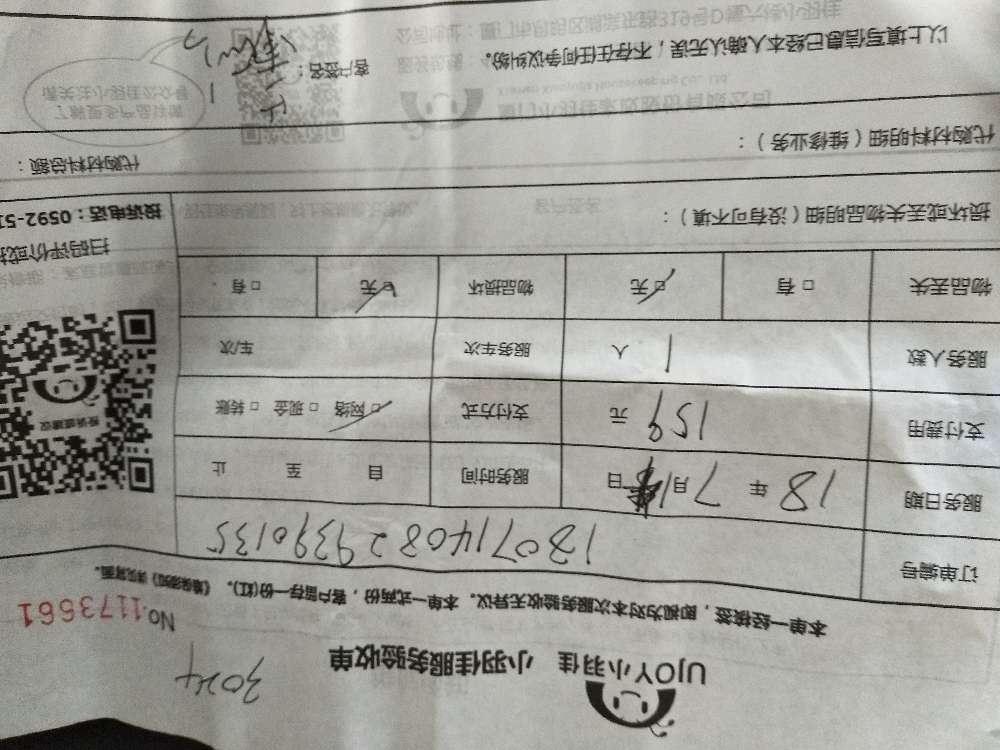 3024
UJOY小羽佳 小羽佳服务验收单
No.1173661
本单一经接签，即视为对本次服务验收无异议。本单一式两份，客户留存一份(红)。
订单编号 180714082939 0135
服务日期 18 年 7 月 日 服务时间 自 至 止
支付费用 159 元 支付方式 □网络 □现金 □转账
服务人数 1 人 服务车次 车/次
物品丢失 □有 □无 物品损坏 □无 □有
投诉或建议
扫码评价或投
投诉电话：0592-51
损坏或丢失物品明细（没有可不填）：
代购材料明细（维修业务）： 代购材料总额：
以上填写信息已经本人确认无误，不存在任何争议和纠纷。 客户签名：